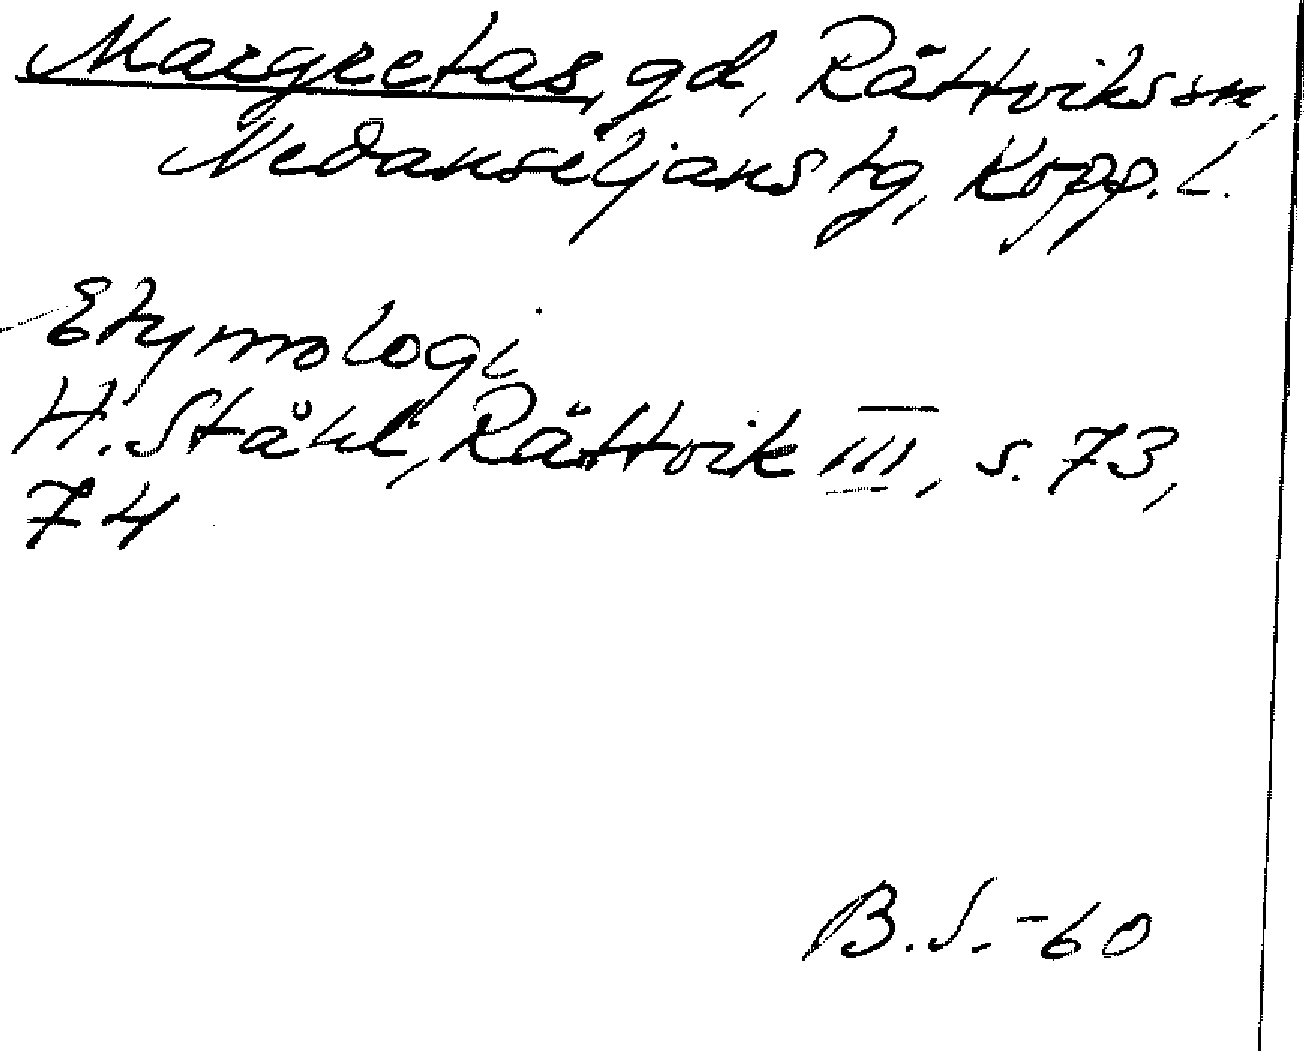 Margretas, gd, Rättviks sn,
Nedansiljans tg, Kopp. l.
Etymologi
H. Ståhl, Rättvik III, s. 73,
74
B.S. -60